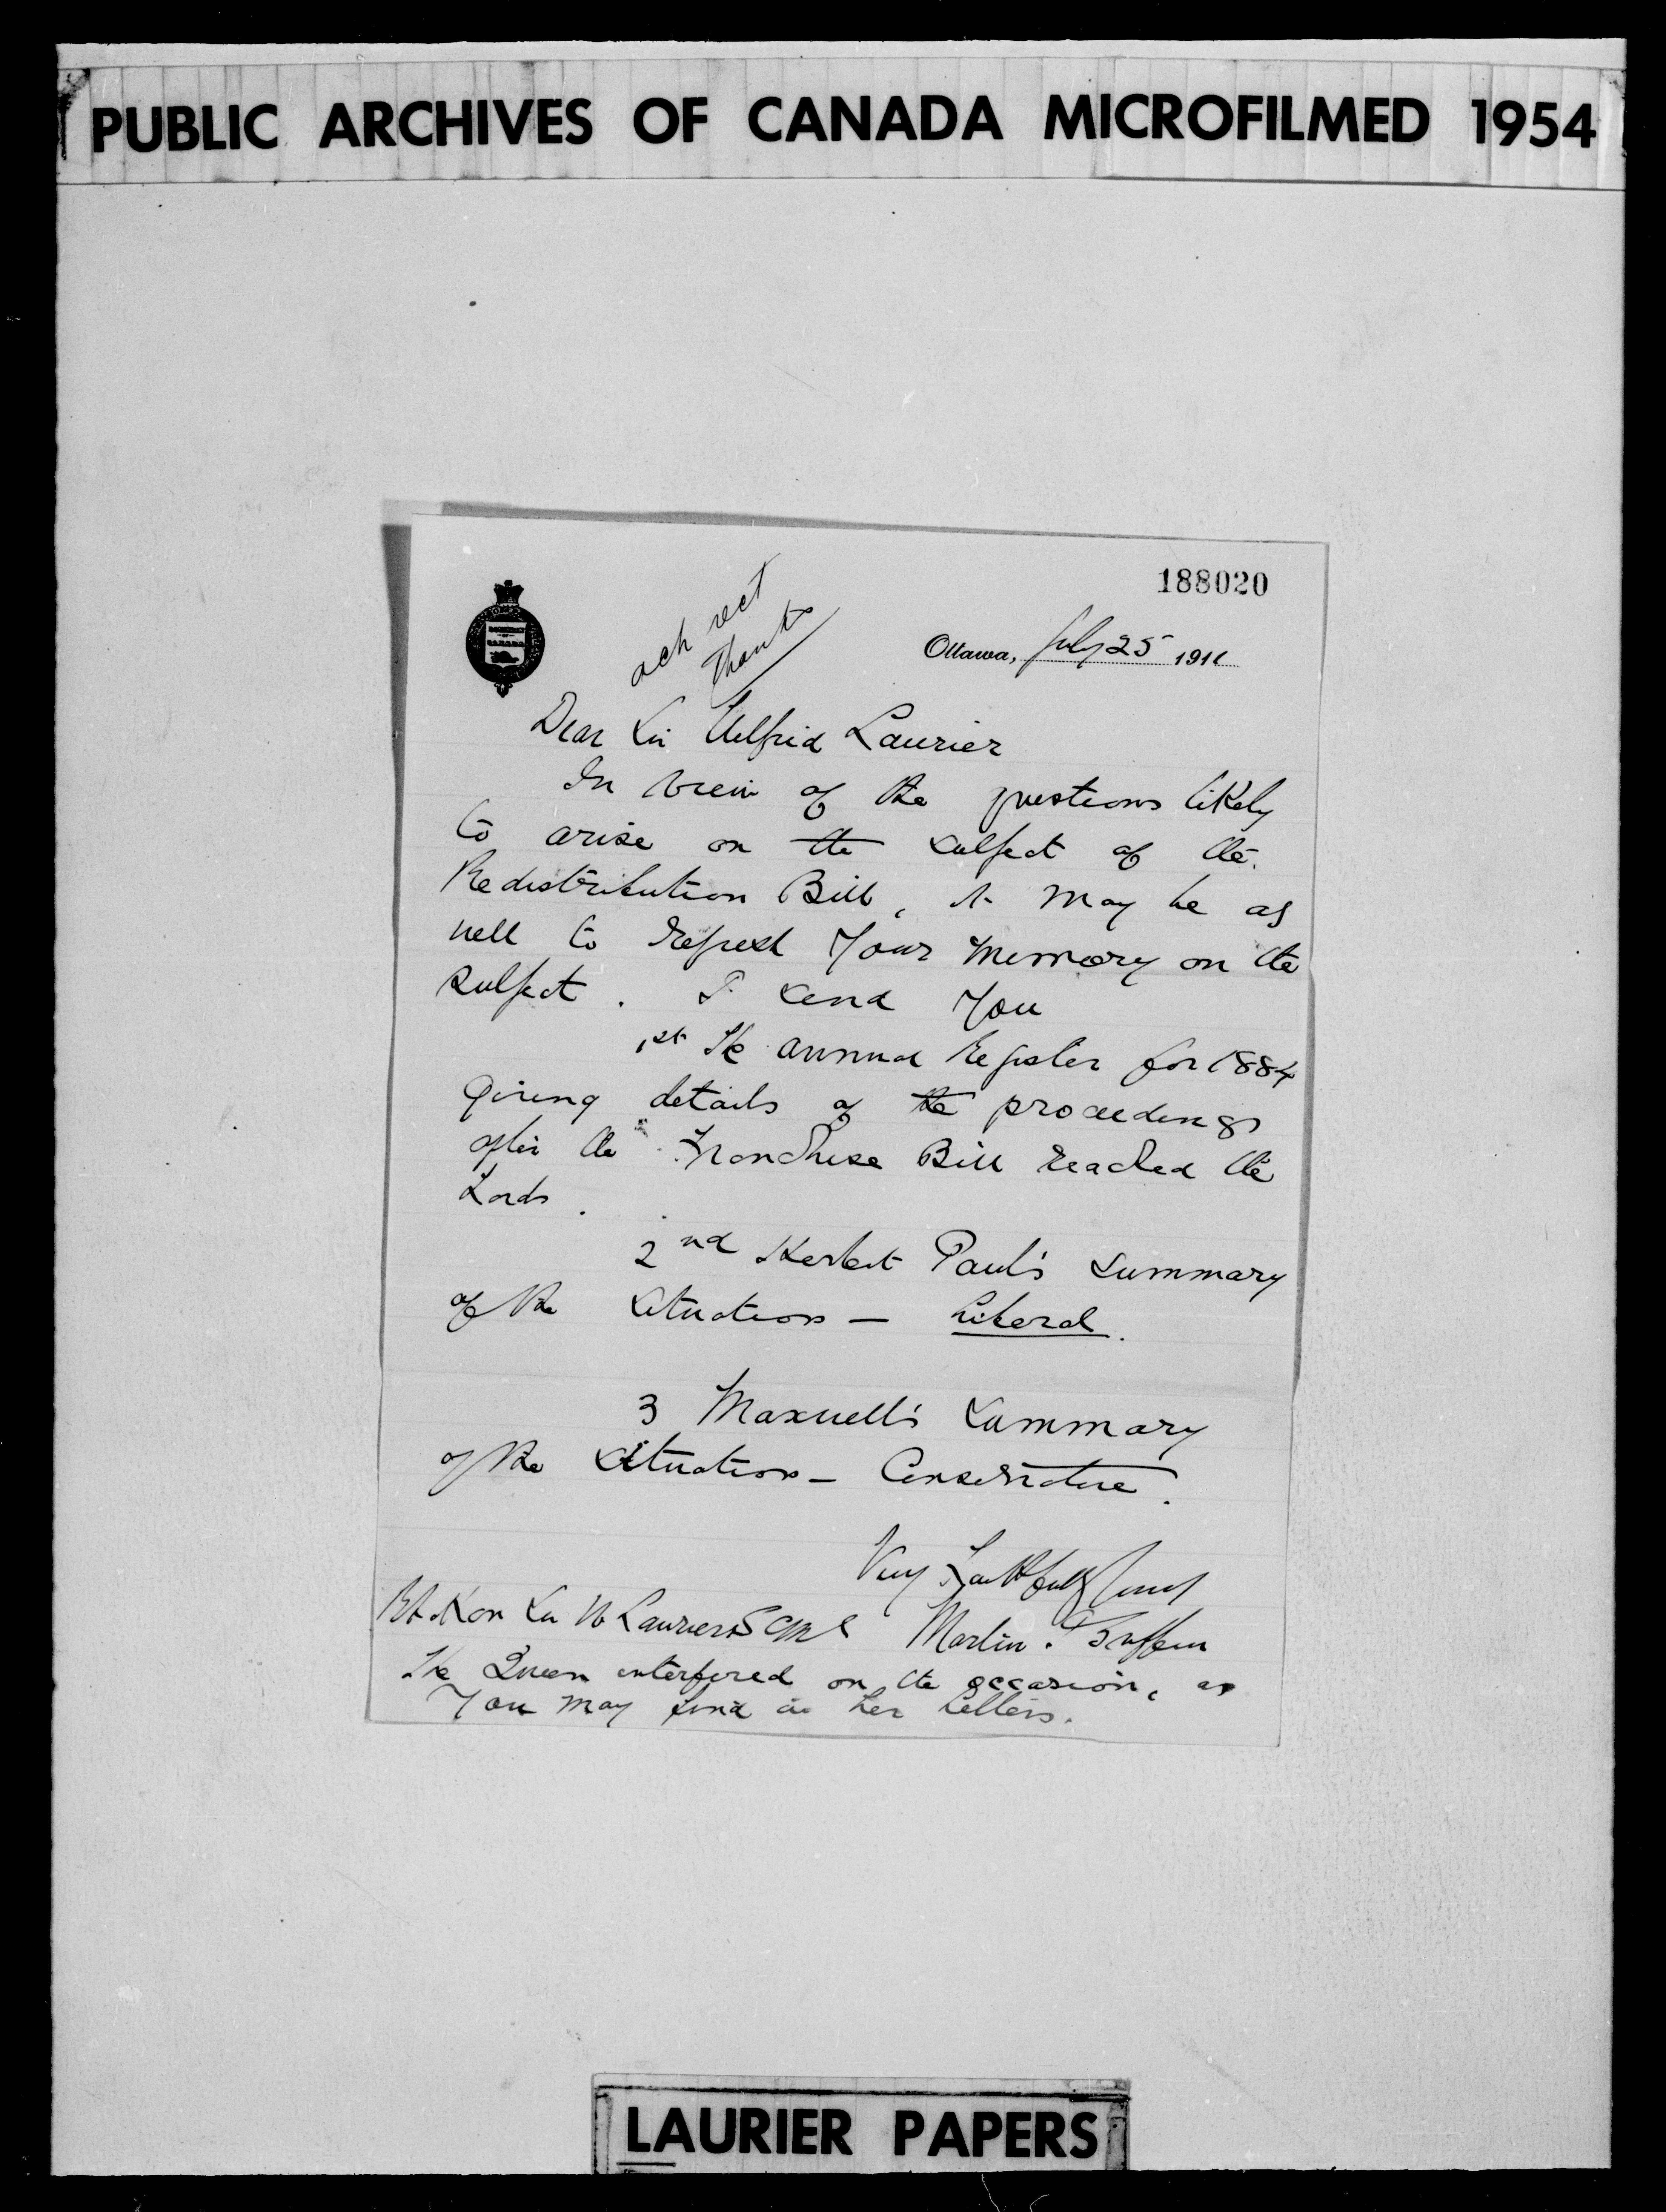 PUBLIC ARCHIVES OF CANADA MICROFILMED 1954
188020
ack rect
Thanks
Ottawa, July 25 1911
Dear Sir Wilfrid Laurier
In view of the questions likely
to arise on the subject of the
Redistribution Bill, it may be as
well to refresh your memory on the
subject. I send you
1st The Annual Register for 1884
giving details of the proceedings
after the Franchise Bill reached the
Lords.
2nd Herbert Paul's summary
of the situation — Liberal.
3 Maxwell's summary
of the situation — Conservative.
Very faithfully yours
Martin J Griffin
Rt Hon Sir W Laurier GCMG
The Queen interfered on the occasion, as
you may find in her letters.
LAURIER PAPERS